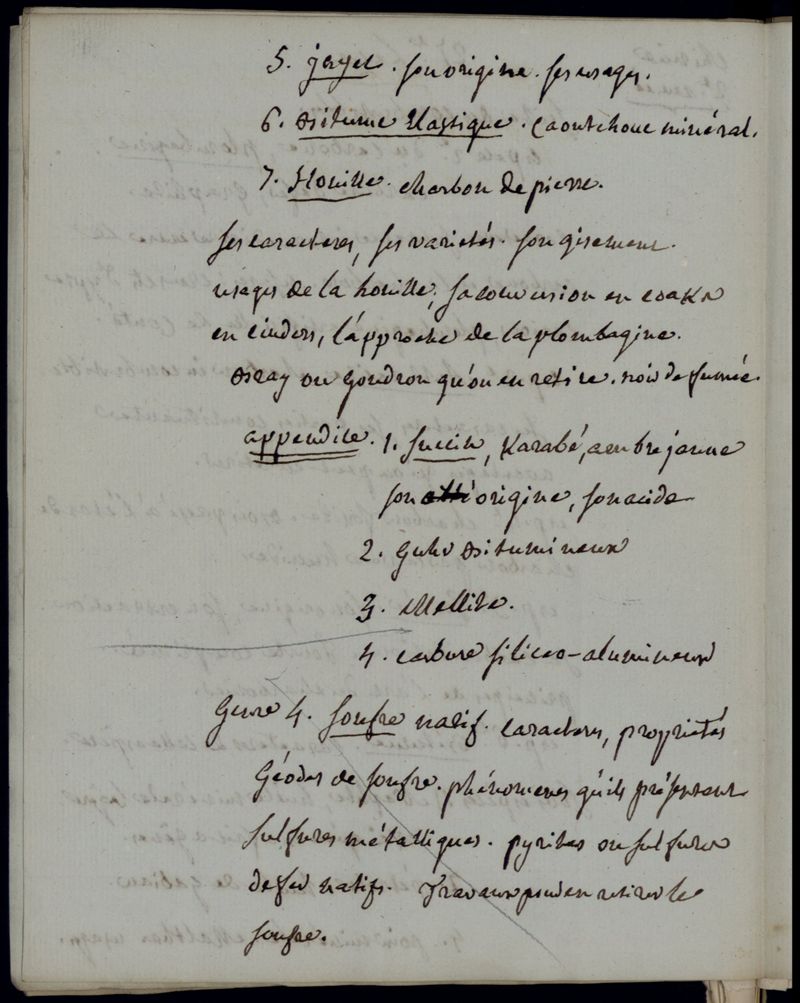 5. jayet. son origine. ses usages.
6. Bitume Elastique. Caoutchouc minéral.
7. Houille. charbon de pierre.
ses caracteres, ses varietés. son gisement.
usages de la houille, sa conversion en coaks
en cinders, l'approche de la plombagine.
Bray ou goudron qu'on en retire. noir de fumée.
appendice. 1. Succin, Karabé, ambre jaune
son origine, son acide
2. Guhr Bitumineux
3. Mellite.
4. carbure siliceo-alumineux
Genre 4. soufre natif. caracteres, proprietés
Géodes de soufre. phénomenes qu'ils présentent
sulfures métalliques. pyrites ou sulfures
de fer natifs. Travaux pour en retirer le
soufre.